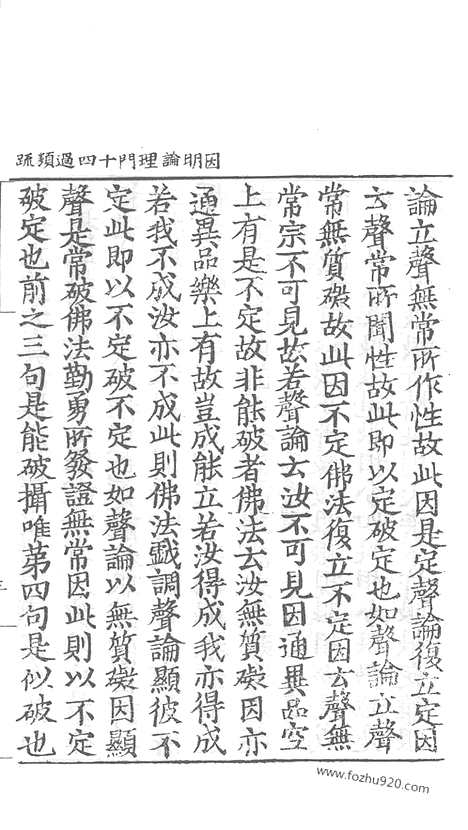 因明論理門十四過類疏
論立聲無常所作性故此因是定聲論復立定因
云聲常所聞性故此即以定破定也如聲論立聲
常無質礙故此因不定佛法復立不定因云聲無
常宗不可見故若聲論云汝不可見因通異品空
上有是不定故非能破者佛法云汝無質礙因亦
通異品樂上有故豈成能立若汝得成我亦得成
若我不成汝亦不成此則佛法戲調聲論顯彼不
定此即以不定破不定也如聲論以無質礙因顯
聲是常破佛法勤勇所發證無常因此則以不定
破定也前之三句是能破攝唯第四句是似破也
www.fozhu920.com